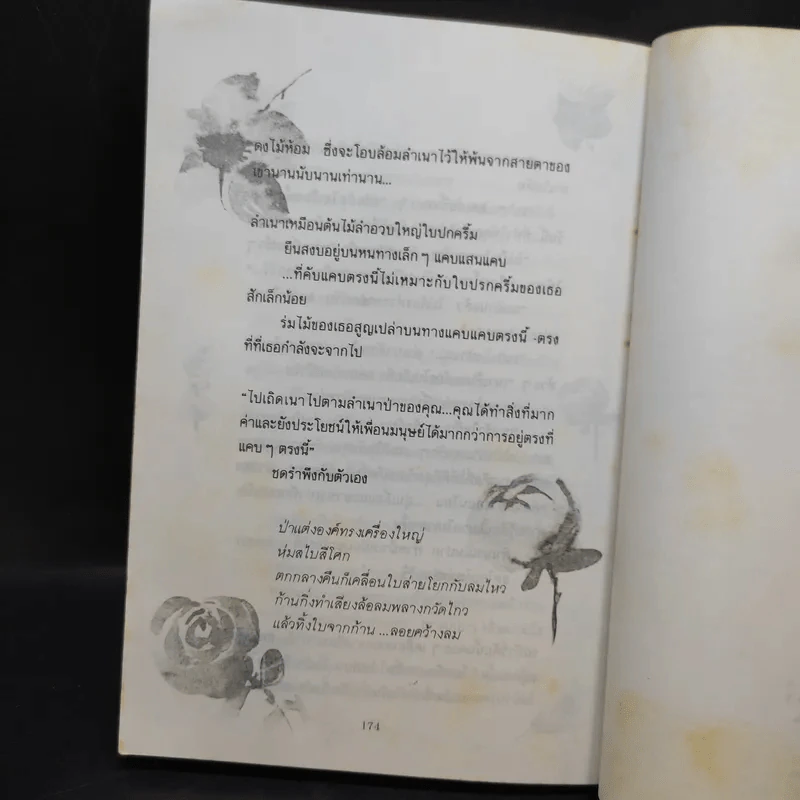 ดงไม้ห้อม ซึ่งจะโอบล้อมลำเนาไว้ให้พ้นจากสายตาของ
เขานานนับนานเท่านาน...
ลำเนาเหมือนต้นไม้ลำอวบใหญ่ใบปกครึ้ม
ยืนสงบอยู่บนหนทางเล็ก ๆ แคบแสนแคบ
...ที่คับแคบตรงนี้ไม่เหมาะกับใบปรกครึ้มของเธอ
สักเล็กน้อย
ร่มไม้ของเธอสูญเปล่าบนทางแคบแคบตรงนี้ -ตรง
ที่ที่เธอกำลังจะจากไป
"ไปเถิดเนาไปตามลำเนาป่าของคุณ...คุณได้ทำสิ่งที่มาก
ค่าและยังประโยชน์ให้เพื่อนมนุษย์ได้มากกว่าการอยู่ตรงที่
แคบ ๆ ตรงนี้"
ชดรำพึงกับตัวเอง
ป่าแต่งองค์ทรงเครื่องใหญ่
ห่มสไบสีโศก
ตกกลางคืนก็เคลื่อนใบส่ายโยกกับลมไหว
ก้านกิ่งทำเสียงล้อลมพลางกวัดไกว
แล้วทิ้งใบจากก้าน ...ลอยคว้างลม
174